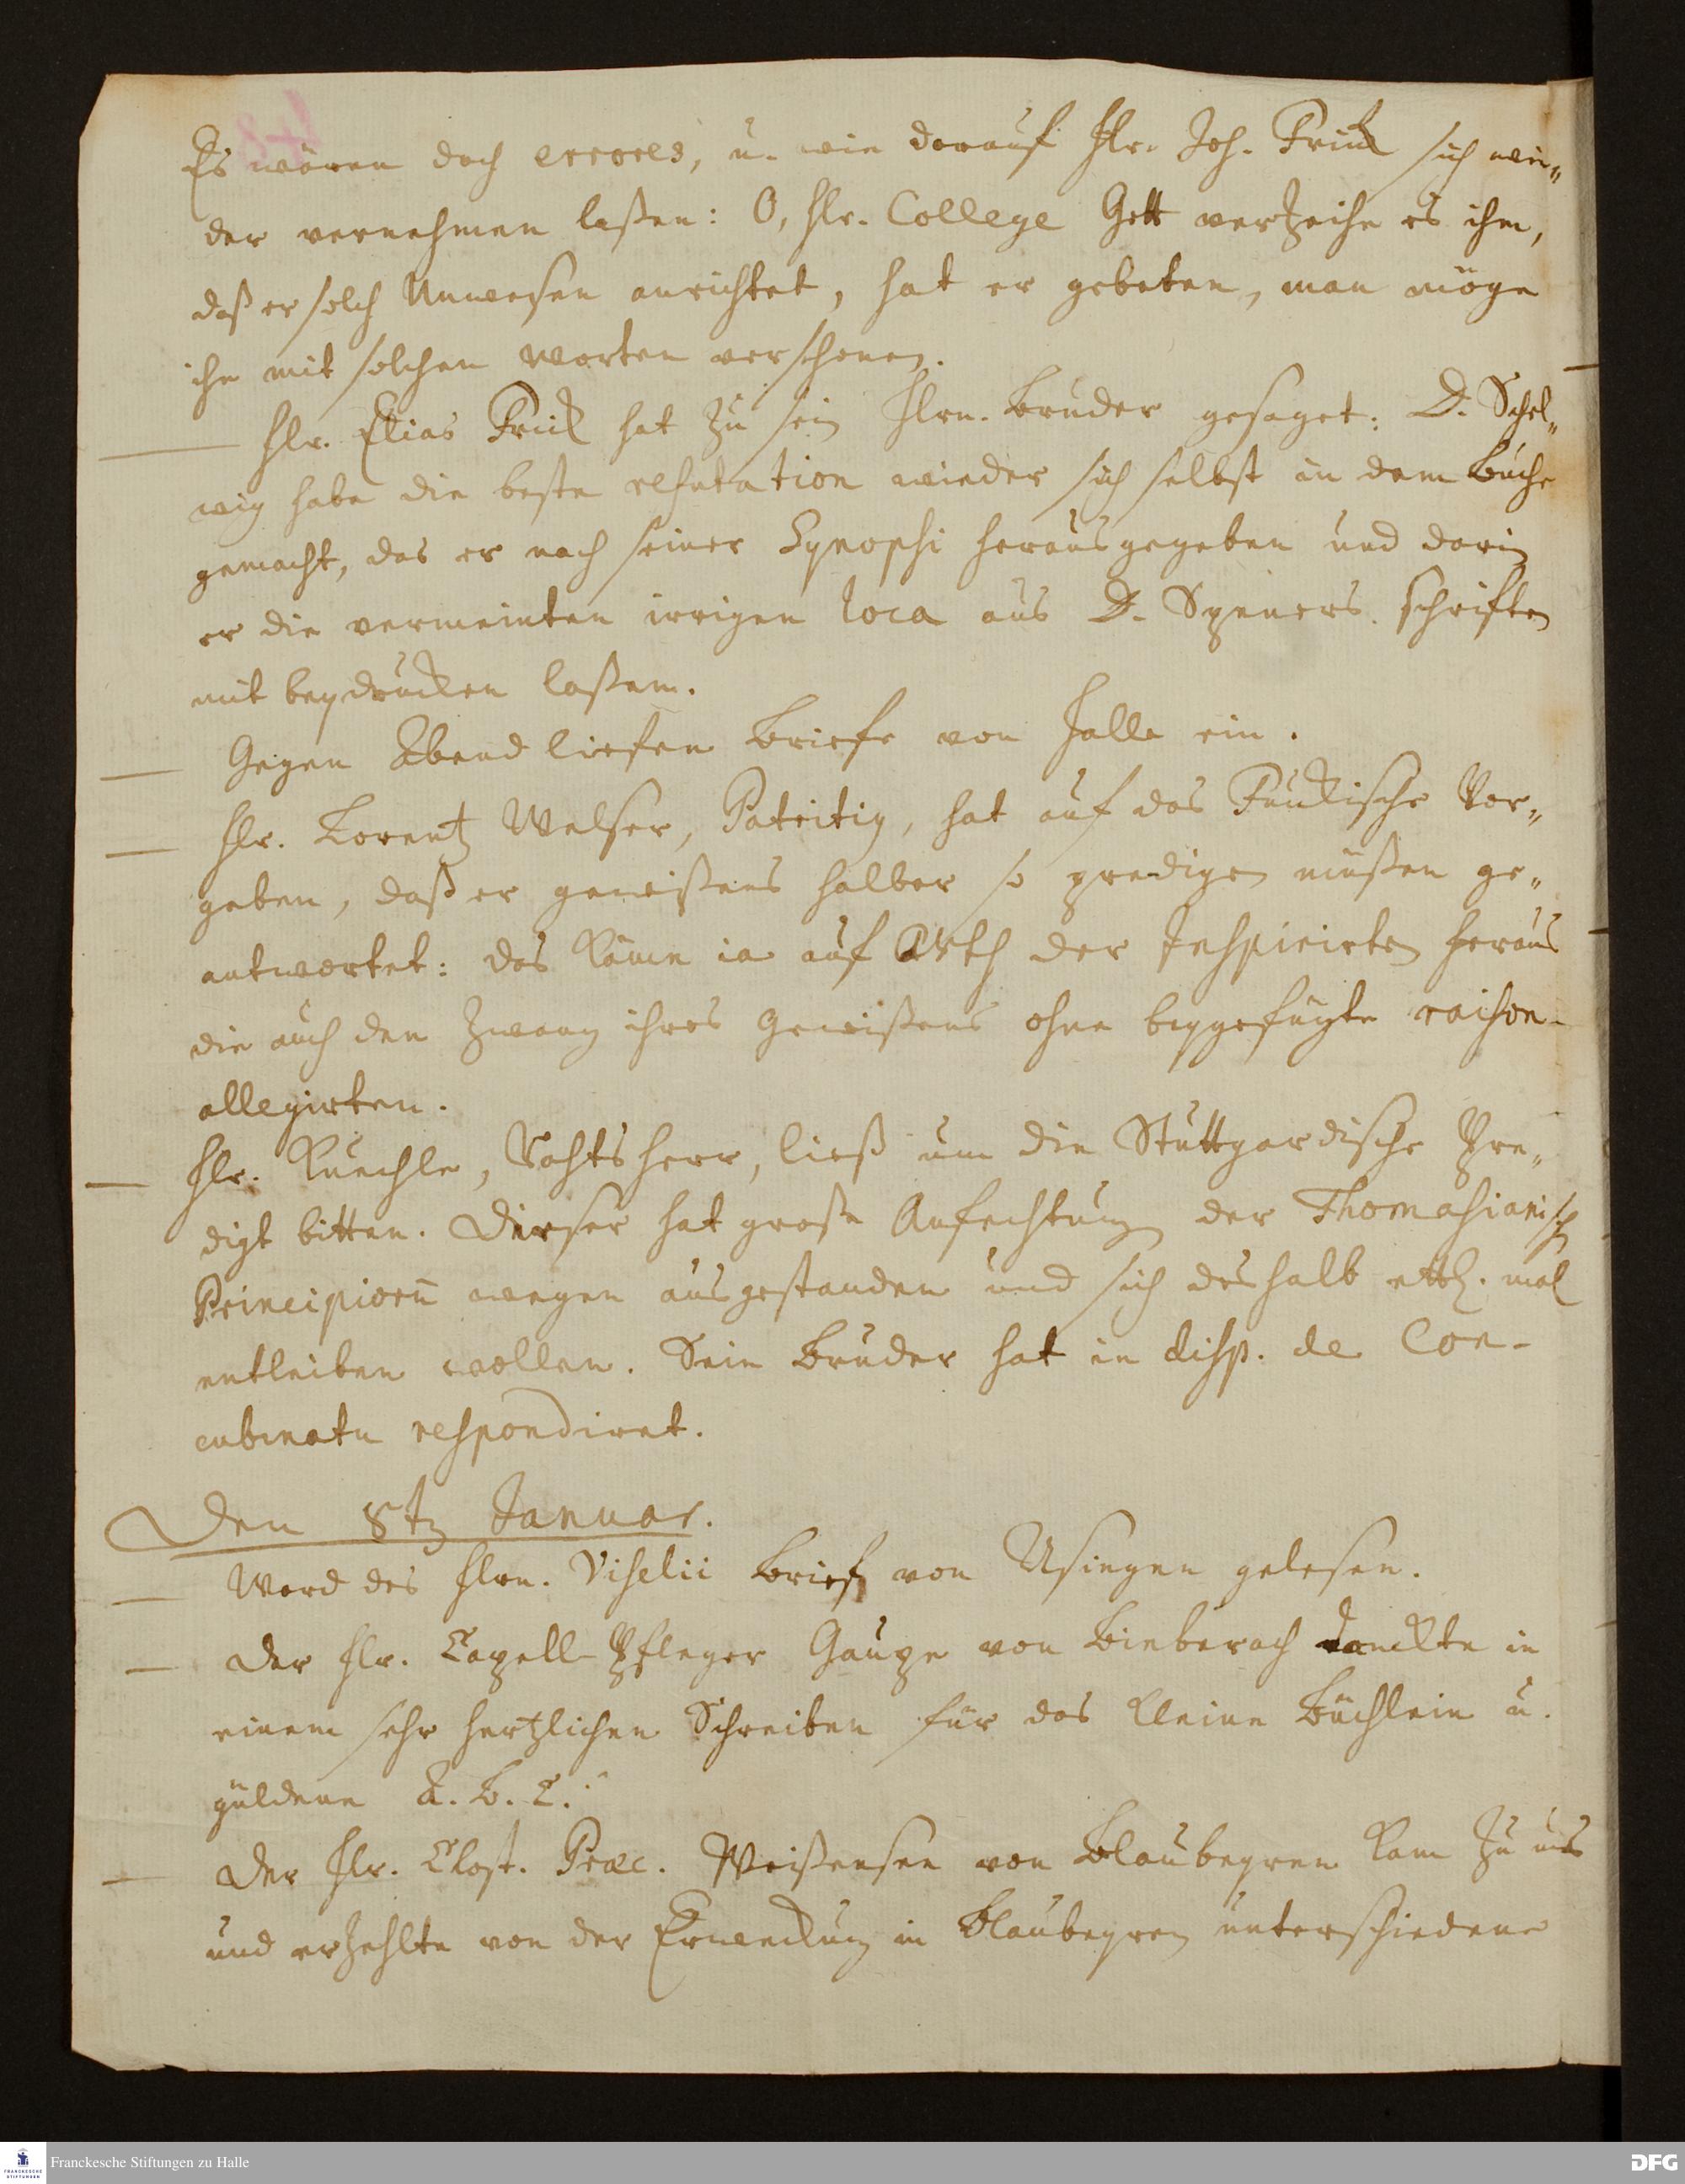 Es wären doch errores, u. wie darauf Hr. Joh. Frick sich wie-
der vernehmen laßen: O, Hr. College Gott verzeihe es ihm,
daß er solch Unwesen anrichtet, hat er gebeten, man möge
ihn mit solchen worten verschonen.
Hr. Elias Frick hat zu sein Hrn. Bruder gesaget: D. Schel-
wig habe die beste refutation wieder sich selbst in dem Buche
gemacht, das er nach seiner Synopsi herausgegeben und darin
er die vermeinten irrigen loca aus D. Speners schriften
mit beydrucken laßen.
Gegen Abend liefen Briefe von Halle ein.
Hr. Lorentz Welser, Patritig, hat auf das Funkische Vor-
geben, daß er gewißens halber so predigen müßen ge-
antwortet: das käme ia auf Arth der Inspirirten heraus
die auch den Zwang ihres Gewißens ohne beygefügte raison
allegirten.
Hr. Kuechle, Rahtsherr, ließ um die Stuttgardische Pre-
digt bitten. Dieser hat große Anfechtung der Thomasianisch
Principiorū wegen ausgestanden und sich deshalb ettl. mal
entleiben wollen. Sein Bruder hat in disp. de Con-
cubinatu respondiret.
Den 8t Januar.
Ward des Hrn. Viselii Brief von Usingen gelesen.
Der Hr. Capell-Pfleger Gaupe von Bieberach danckte in
einem sehr hertzlichen Schreiben für das kleine Büchlein u.
güldene A. B. C.
Der Hr. Clost. Præc. Weißensee von Blaubeyren kam zu uns
und erzehlte von der Erweckung in Blaubeyren unterschiedene
Franckesche Stiftungen zu Halle
FRANCKESCHE
STIFTUNGEN
DFG